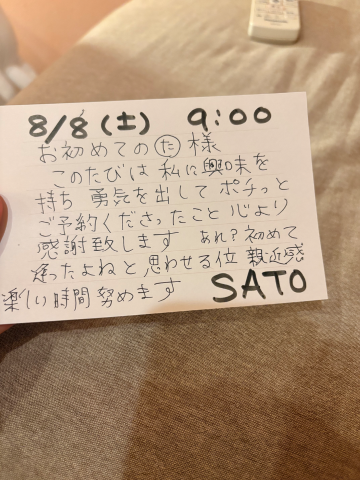 8/8(土) 9:00
お初めての㋟様
このたびは私に興味を
持ち 勇気を出してポチっと
ご予約くださったこと心より
感謝致します あれ?初めて
逢ったよねと思わせる位 親近感
楽しい時間努めます SATO